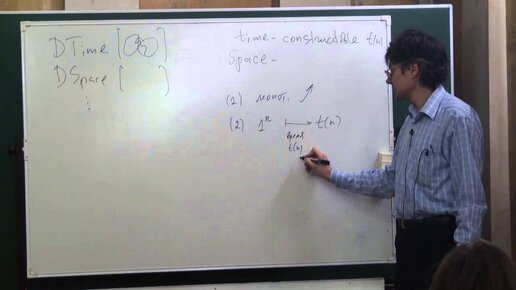 DTime [ ]
DSpace [ ]
⋮
time- constructible t(n)
Space-
(1) монот. ↗
(2) 1ⁿ ↦ t(n)
время
t(n)